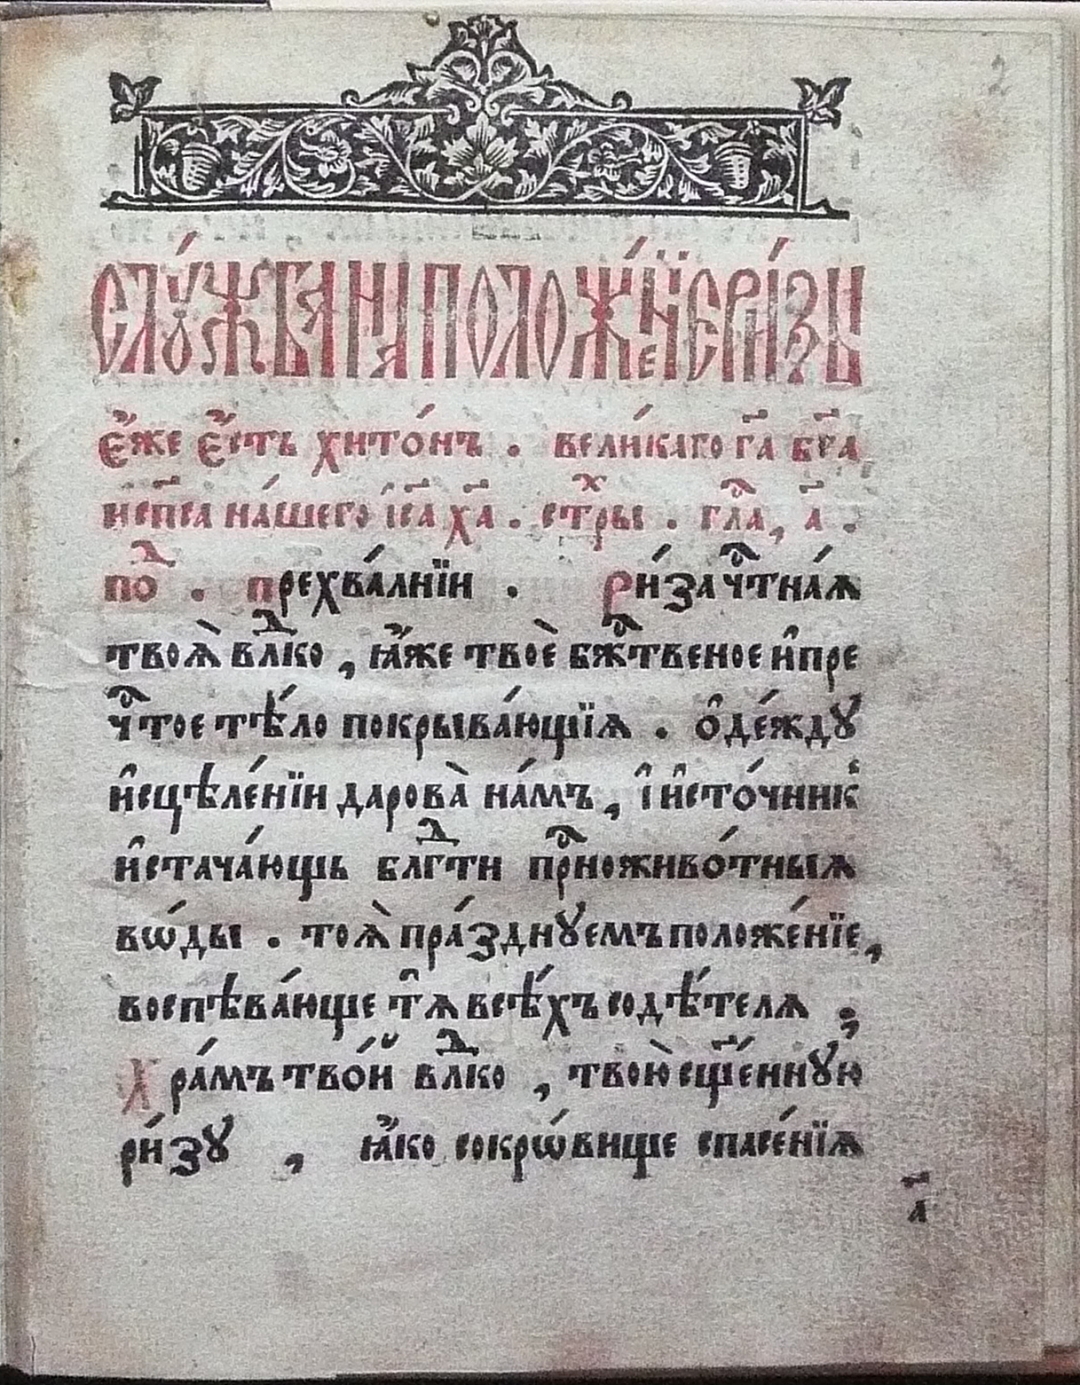 2
слу́жба на положе́нїе ри́зы
є҆́же є҆́сть хито́нъ . вели́каго гд҇а бг҃а
и҆ сп҃са на́шего і҆с҃а хр҇та̀ . стх҇ры . гла҇, а҃ .
поⷣ . прехва́лнїи . ри́за чⷭ҇тна́ѧ
твоѧ̀ влⷣко , ꙗ҆́же твоѐ бжⷭ҇твеное и҆ пре
чⷭ҇тое тѣ́ло покрыва́ющїѧ . ѻ҆де́ждꙋ
и҆сцѣле́нїи дарова̀ на́мъ , і҆ и҆сто́чник̾
и҆стача́ющь блгⷣти прⷭ҇ноживо́тныѧ
вѡ́ды . тоѧ̀ пра́зднꙋемъ положе́нїе ,
воспѣва́юще тѧ̑ всѣ́хъ содѣ́телѧ ;
Хра́мъ тво́й влⷣко , твою̀ сщ҃е́ннꙋю
ри́зꙋ , ꙗ҆́ко сокрѡ́вище спасе́нїѧ
а҃